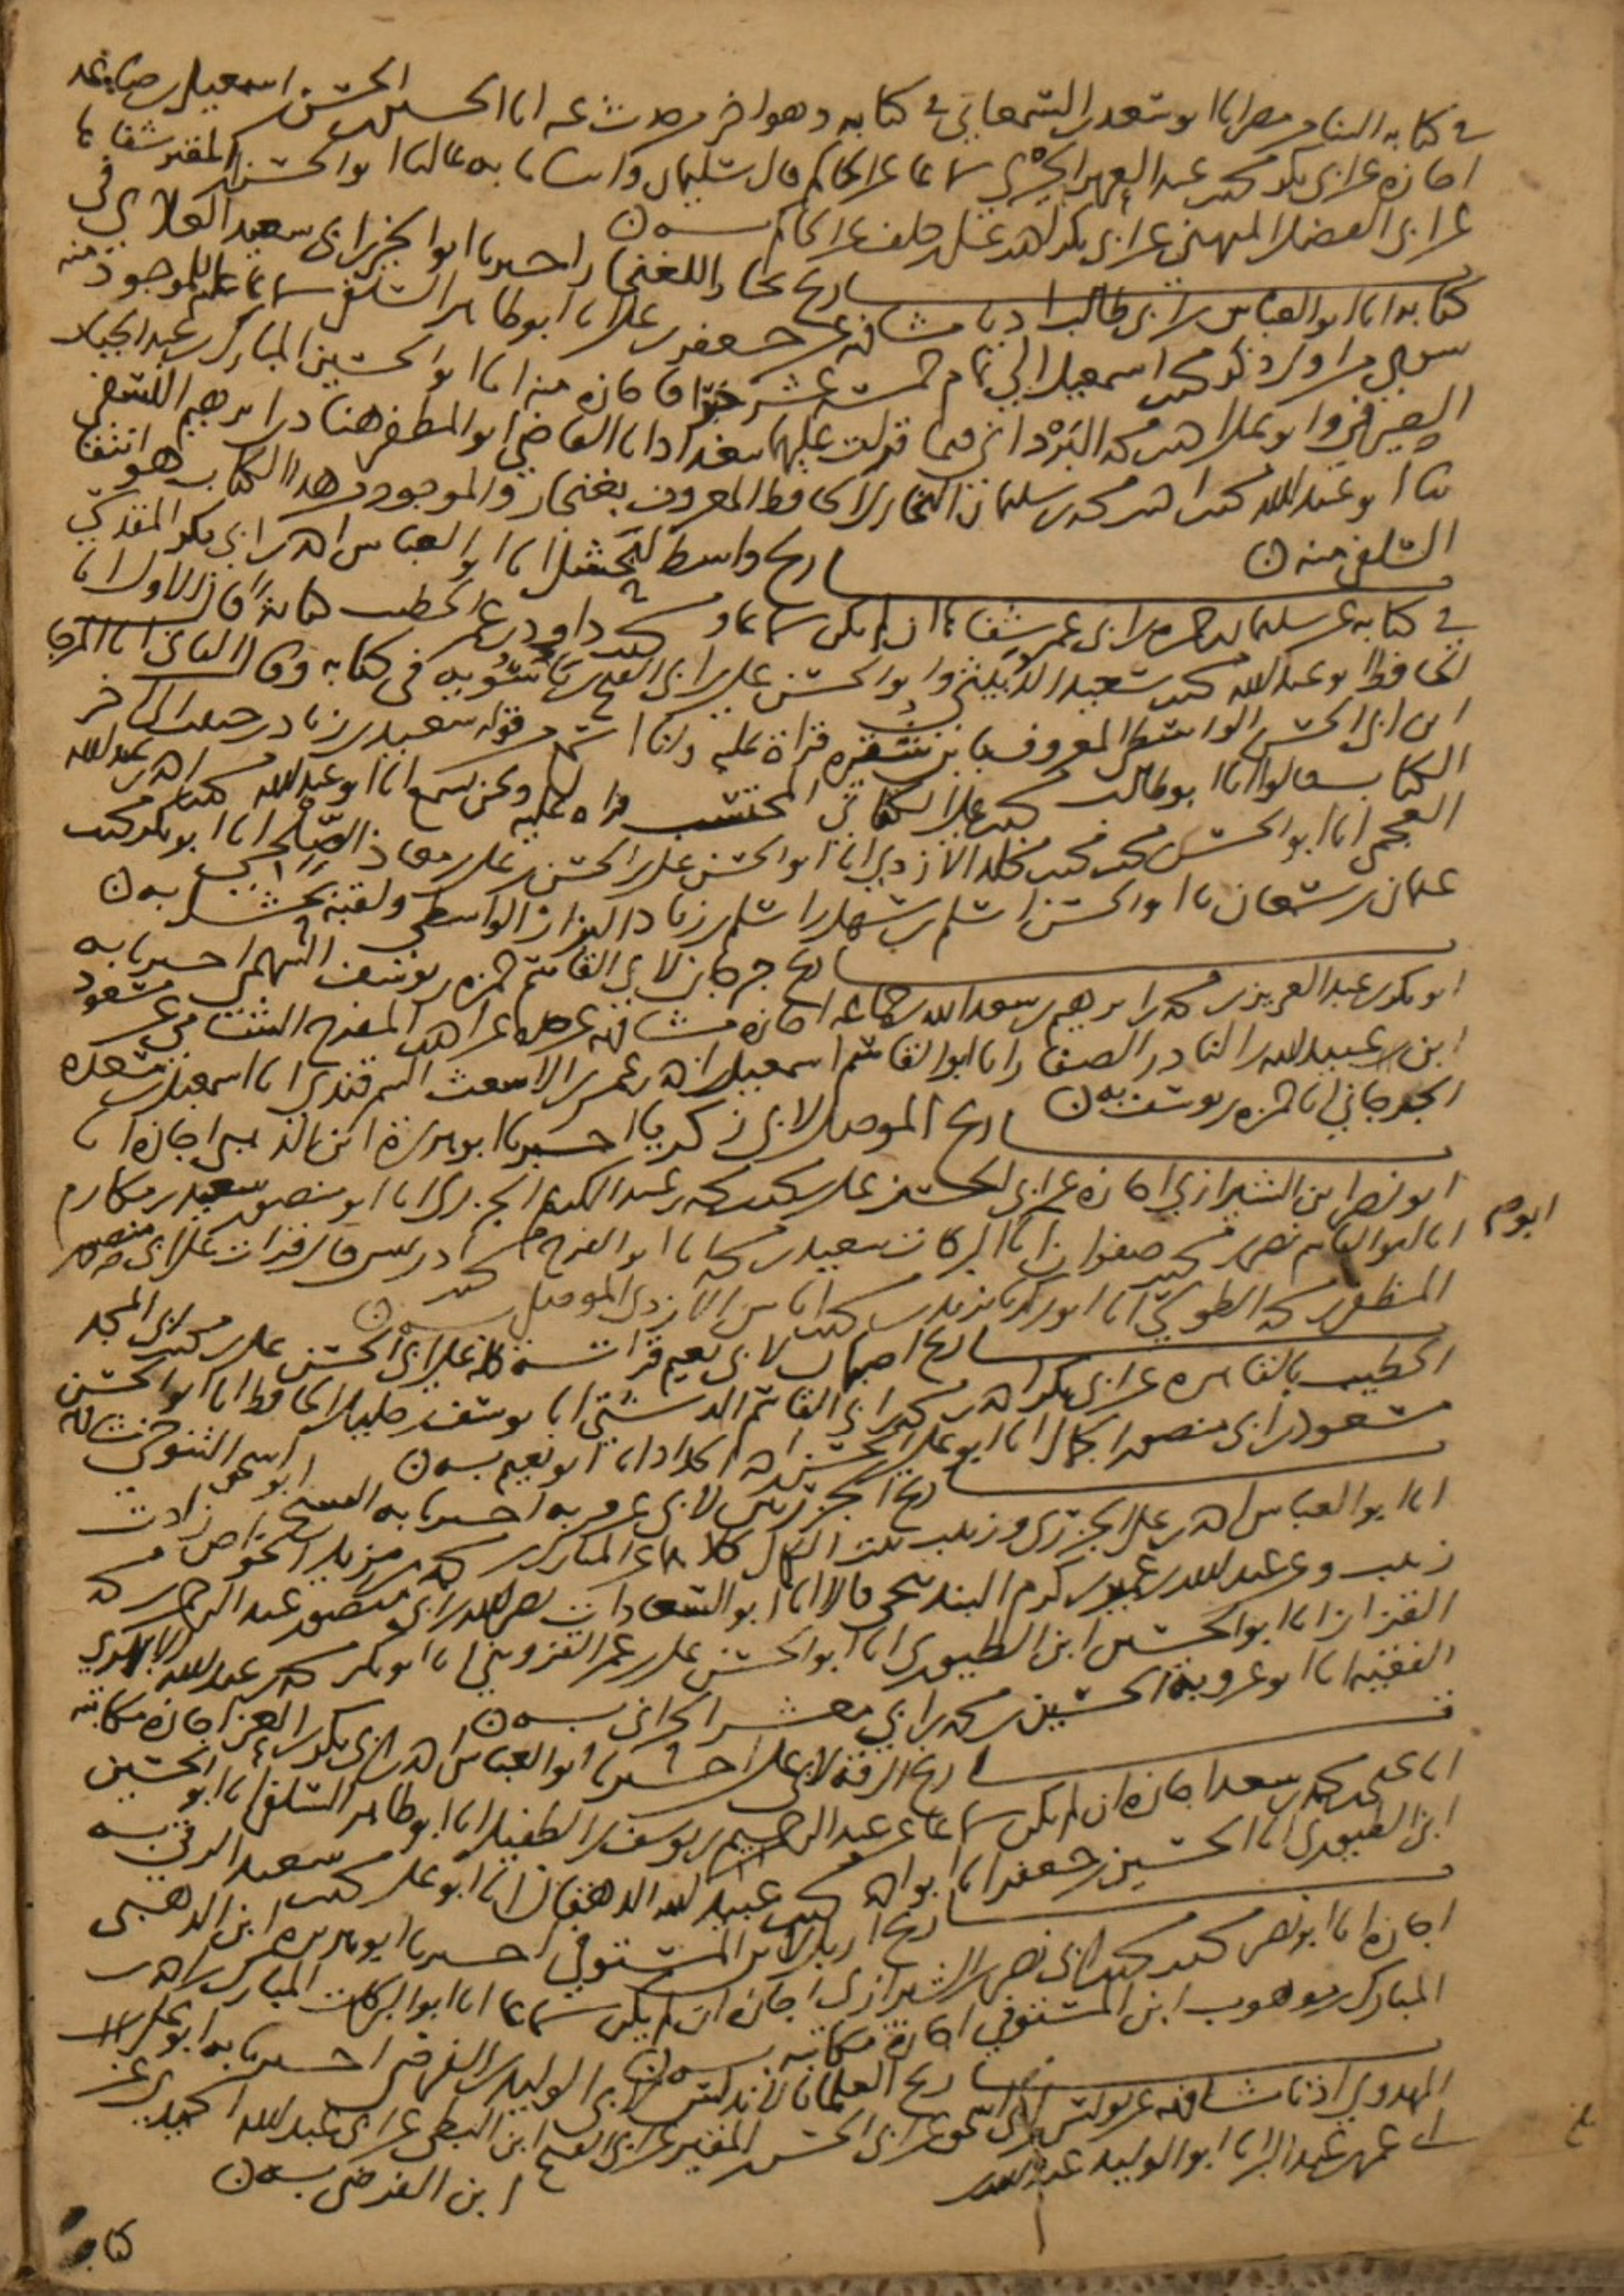 في كتابه انبانا ابو سعد السمعاني في كتابه وهو اخر من حدث عنه انا الحسن اسمعيل بن صاعد
اجازة عن ابي بكر محمد بن عبد العزيز الحيري سماعا عن الحاكم قال سليمان وانبانا به عاليا ابو الحسن ابن المقير شفاها
عن ابي الفضل الميهني عن ابي بكر احمد بن علي بن خلف عن الحاكم به ن
تاريخ بخارا للغنجار اخبرنا ابو الخير ابن ابي سعيد العلائي في
كتابه انا ابو العباس بن ابي طالب اذنا مشافهة عن جعفر بن علي انا ابو طاهر السلفي سماعا عليه للموجود منه
سوى من اول ذكر محمد بن اسمعيل الى تمام خمسة عشر فاجازة منه انا ابو الحسين المبارك بن عبد الجبار
الصيرفي وابو علي احمد بن محمد البرداني فيما قرات عليهما ببغداد انا القاضي ابو المظفر هناد بن ابرهيم النسفي
ثنا ابو عبد الله محمد بن احمد بن محمد بن سليمان البخاري الحافظ المعروف بغنجار والموجود من هذا الكتاب هو انتقا
السلفي منه ن
تاريخ واسط لبحشل انا ابو العباس احمد بن ابي بكر المقدسي
في كتابه عن سليمان بن حمزة بن ابي عمر شفاها ان لم يكن سماعا و محمد بن داود بن عمر الخطيب كتابة قال الاول انا
الحافظ ابو عبد الله محمد بن سعيد الدبيثي وابو الحسن علي بن ابي الفتح بن ماسويه في كتابه وقال الثاني انا المرجا
ابن ابي الحسن الواسطي المعروف بابن شقيره قراة عليه وانا اسمع من قوله سعيد بن زياد بن جبير الى اخر
الكتاب قالوا انا ابو طالب محمد بن علي الكتاني المحتسب قراة عليه ونحن نسمع انا ابو عبد الله محمد بن احمد بن عبد الله
العجمي انا ابو الحسن محمد بن محمد بن مخلد الازدي انا ابو الحسن علي بن الحسن بن علي بن معاذ الصلحي انا ابو بكر محمد
بن عثمان بن سمعان نا ابو الحسن اسلم بن سهل بن اسلم بن زياد الرزاز الواسطي ولقبه بحشل به ن
تاريخ جرجان لابي القاسم حمزه بن يوسف السهمي اخبرنا به
ابو بكر بن عبد العزيز بن محمد بن ابرهيم بن سعد الله بن جماعة اجازة مشافهة عن جده عن احمد بن المفرج الشامي عن مسعود
ابن عبيد الله بن النادر الصفار انا ابو القاسم اسمعيل بن احمد بن عمر بن الاشعث السمرقندي انا اسمعيل بن مسعده
الجرجاني انا حمزه بن يوسف به ن
تاريخ الموصل لابي زكريا اخبرنا ابو هريرة ابن الذهبي اجازة انا
ابو نصر ابن الشيرازي اجازة عن ابي الحسن علي بن محمد بن محمد بن عبد الكريم الجزري انا ابو منصور سعيد بن مكارم
انا ابو القاسم نصر بن محمد بن صفوان انا ابو البركات سعيد بن محمد انا ابو الفرج محمد بن ادريس قال قرات على ابي منصور
المظفر بن محمد الطوسي انا ابو زكريا يزيد بن محمد بن اياس الازدي الموصلي به ن
تاريخ اصبهان لابي نعيم قرات منه قطعة على ابي الحسن علي بن محمد بن ابي المجد
الخطيب بالقاهره عن ابي بكر احمد بن محمد بن ابي القاسم الدشتي انا يوسف بن خليل الحافظ انا ابو الحسن
مسعود بن ابي منصور الجمال انا ابو علي الحسن بن احمد الحداد انا ابو نعيم به ن
تاريخ الجزريين لابي عروبه اخبرنا به ابو اسحق التنوخي
انا ابو العباس احمد بن علي الجزري وزينب بنت الكمال كلاهما عن المبارك بن محمد بن مزيد الخواص زادت
زينب وعن عبد الله بن عمر بن كرم البندنيجي قالا انا ابو السعادات نصر الله بن ابي منصور عبد الرحمن بن محمد
القزاز انا ابو الحسين ابن الطيوري انا ابو الحسن علي بن عمر القزويني انا ابو بكر محمد بن عبد الله الابهري
الفقيه انا ابو عروبة الحسين بن محمد بن ابي معشر الحراني به ن
تاريخ الرقة لابي علي اخبرنا ابو العباس احمد بن ابي بكر بن العز اجازة مكاتبة
انا يحيى بن محمد بن سعد اجازة ان لم يكن سماعا عن عبد الرحيم بن يوسف بن الطفيل انا ابو طاهر السلفي انا ابو الحسين
ابن الطيوري انا الحسين بن جعفر انا ابو احمد محمد بن عبيد الله الدهقان انا ابو علي محمد بن سعيد الرقي به
تاريخ اربل لابن المستوفي اخبرنا ابو هريرة ابن الذهبي
اجازة انا ابو نصر محمد بن محمد بن ابي نصر الشيرازي اجازة ان لم يكن سماعا انا ابو البركات المبارك بن احمد بن
المبارك بن موهوب ابن المستوفي اجازة مكاتبة به ن
تاريخ العلما بالاندلس لابي الوليد بن الفرضي اخبرنا به ابو علي
المهدوي اذنا مشافهة عن يونس بن ابي اسحق عن ابي الحسن ابن المقير عن ابي الفتح ابن البطي عن ابي عبد الله الحميدي عن
ابي عمر بن عبد البر انا ابو الوليد عبد الله ابن الفرضي به ن
كتاب